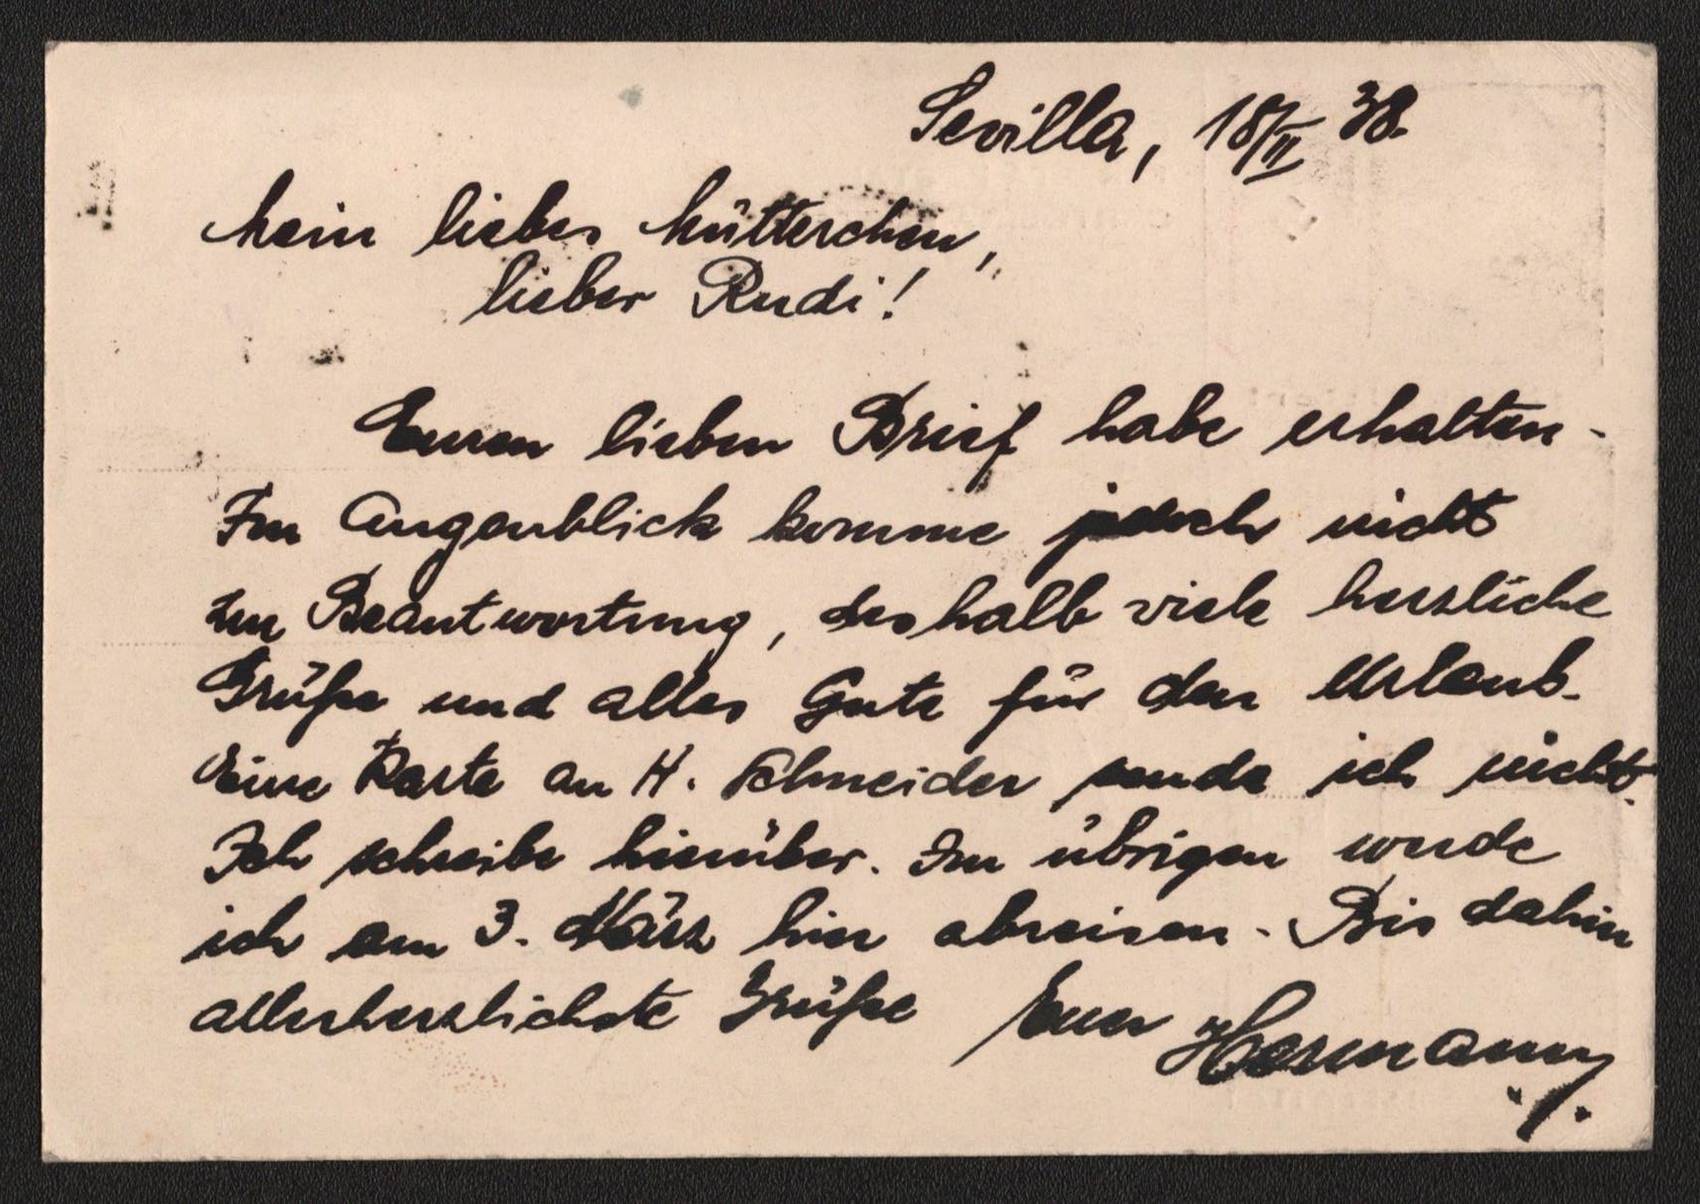 Sevilla, 18/II 38.
Mein liebes Mütterchen,
lieber Rudi!
Euren lieben Brief habe erhalten.
Im Augenblick komme jedoch nicht
zur Beantwortung, deshalb viele herzliche
Grüße und alles Gute für den Urlaub.
Eine Karte an H. Schneider sende ich nicht.
Ich schreibe hierüber. Im übrigen werde
ich am 3. März hier abreisen. Bis dahin
allerherzlichste Grüße Euer Hermann.